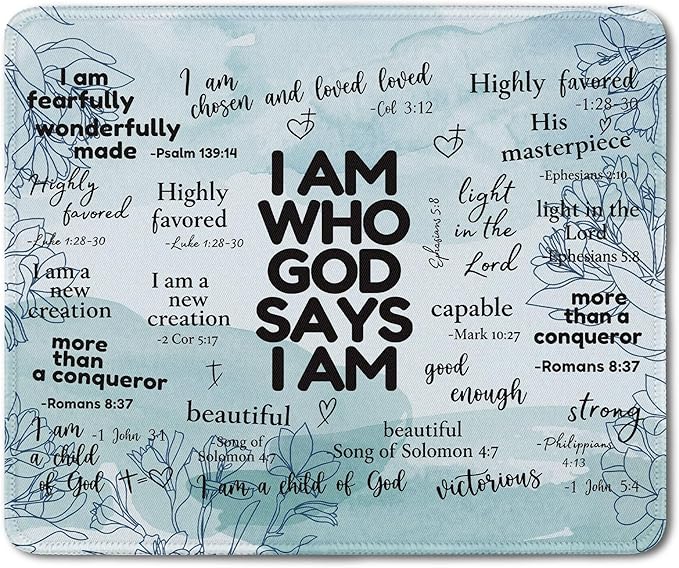 I am
fearfully
wonderfully
made -Psalm 139:14
I am
chosen and loved loved
-Col 3:12
Highly favored
-1:28-30
His
masterpiece
-Ephesians 2:10
Highly
favored
-Luke 1:28-30
Highly
favored
-Luke 1:28-30
I AM
WHO
GOD
SAYS
I AM
Ephesians 5:8
light
in the
Lord
light in the
Lord
Ephesians 5:8
I am a
new
creation
I am a
new
creation
-2 Cor 5:17
capable
-Mark 10:27
more
than a
conqueror
-Romans 8:37
more
than
a conqueror
-Romans 8:37
good
enough
strong
-Philippians
4:13
beautiful
-Song of
Solomon 4:7
beautiful
-Song of Solomon 4:7
I am -1 John 3:1
a child
of God
I am a child of God
victorious -1 John 5:4